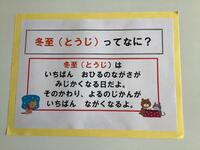 冬至（とうじ）ってなに？
冬至（とうじ）は
いちばん おひるのながさが
みじかくなる日だよ。
そのかわり、よるのじかんが
いちばん ながくなるよ。